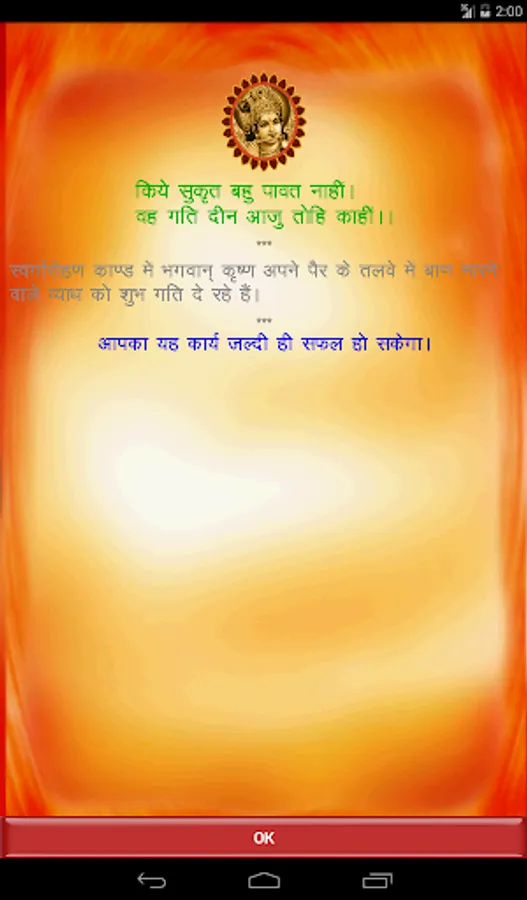 2:00
किये सुकृत बहु पावत नाहीं।
वह गति दीन आजु तोहि काहीं।।
***
स्वर्गारोहण काण्ड में भगवान् कृष्ण अपने पैर के तलवे में बाण मारने
वाले व्याध को शुभ गति दे रहे हैं।
***
आपका यह कार्य जल्दी ही सफल हो सकेगा।
OK